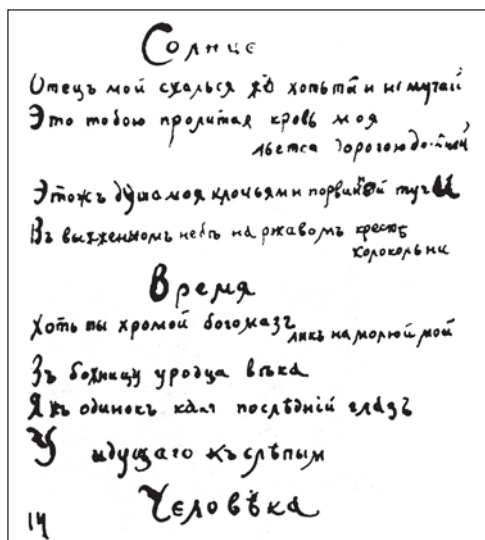 Солнце
Отецъ мой сжалься хоть ты и не мучай
Это тобою пролитая кровь моя
льется дорогою дольней
Этожъ душа моя клочьями порванной тучи
Въ выжженномъ небѣ на ржавомъ крестѣ
колокольни
Время
Хоть ты хромой богомазъ ликъ намолюй мой
Въ божницу уродца вѣка
Я одинокъ какъ послѣдній глазъ
У идущаго къ слѣпым
Человѣка
14